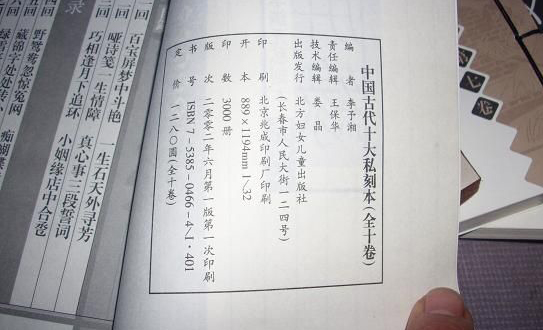 中国古代十大私刻本（全十卷）
编 者 李予湘
责任编辑 王保华
技术编辑 娄 晶
出版发行 北方妇女儿童出版社
（长春市人民大街一二四号）
印 刷 北京兆成印刷厂印刷
开 本 889×1194mm 1/32
印 数 3000 册
版 次 二零零二年六月第一版第一次印刷
书 号 ISBN 7-5385-0466-4/I·401
定 价 一二八〇圆（全十卷）
录
一回 百宝屏梦中斗艳 一生石天外寻芳
二回 哑诗笺一生情障 真心事三段誓词
三回 巧相逢月下追环 小姻缘店中合卺
四回 野鸳鸯忽惊冤网 痴蝴蝶
五回 藏锦字处处传
六回